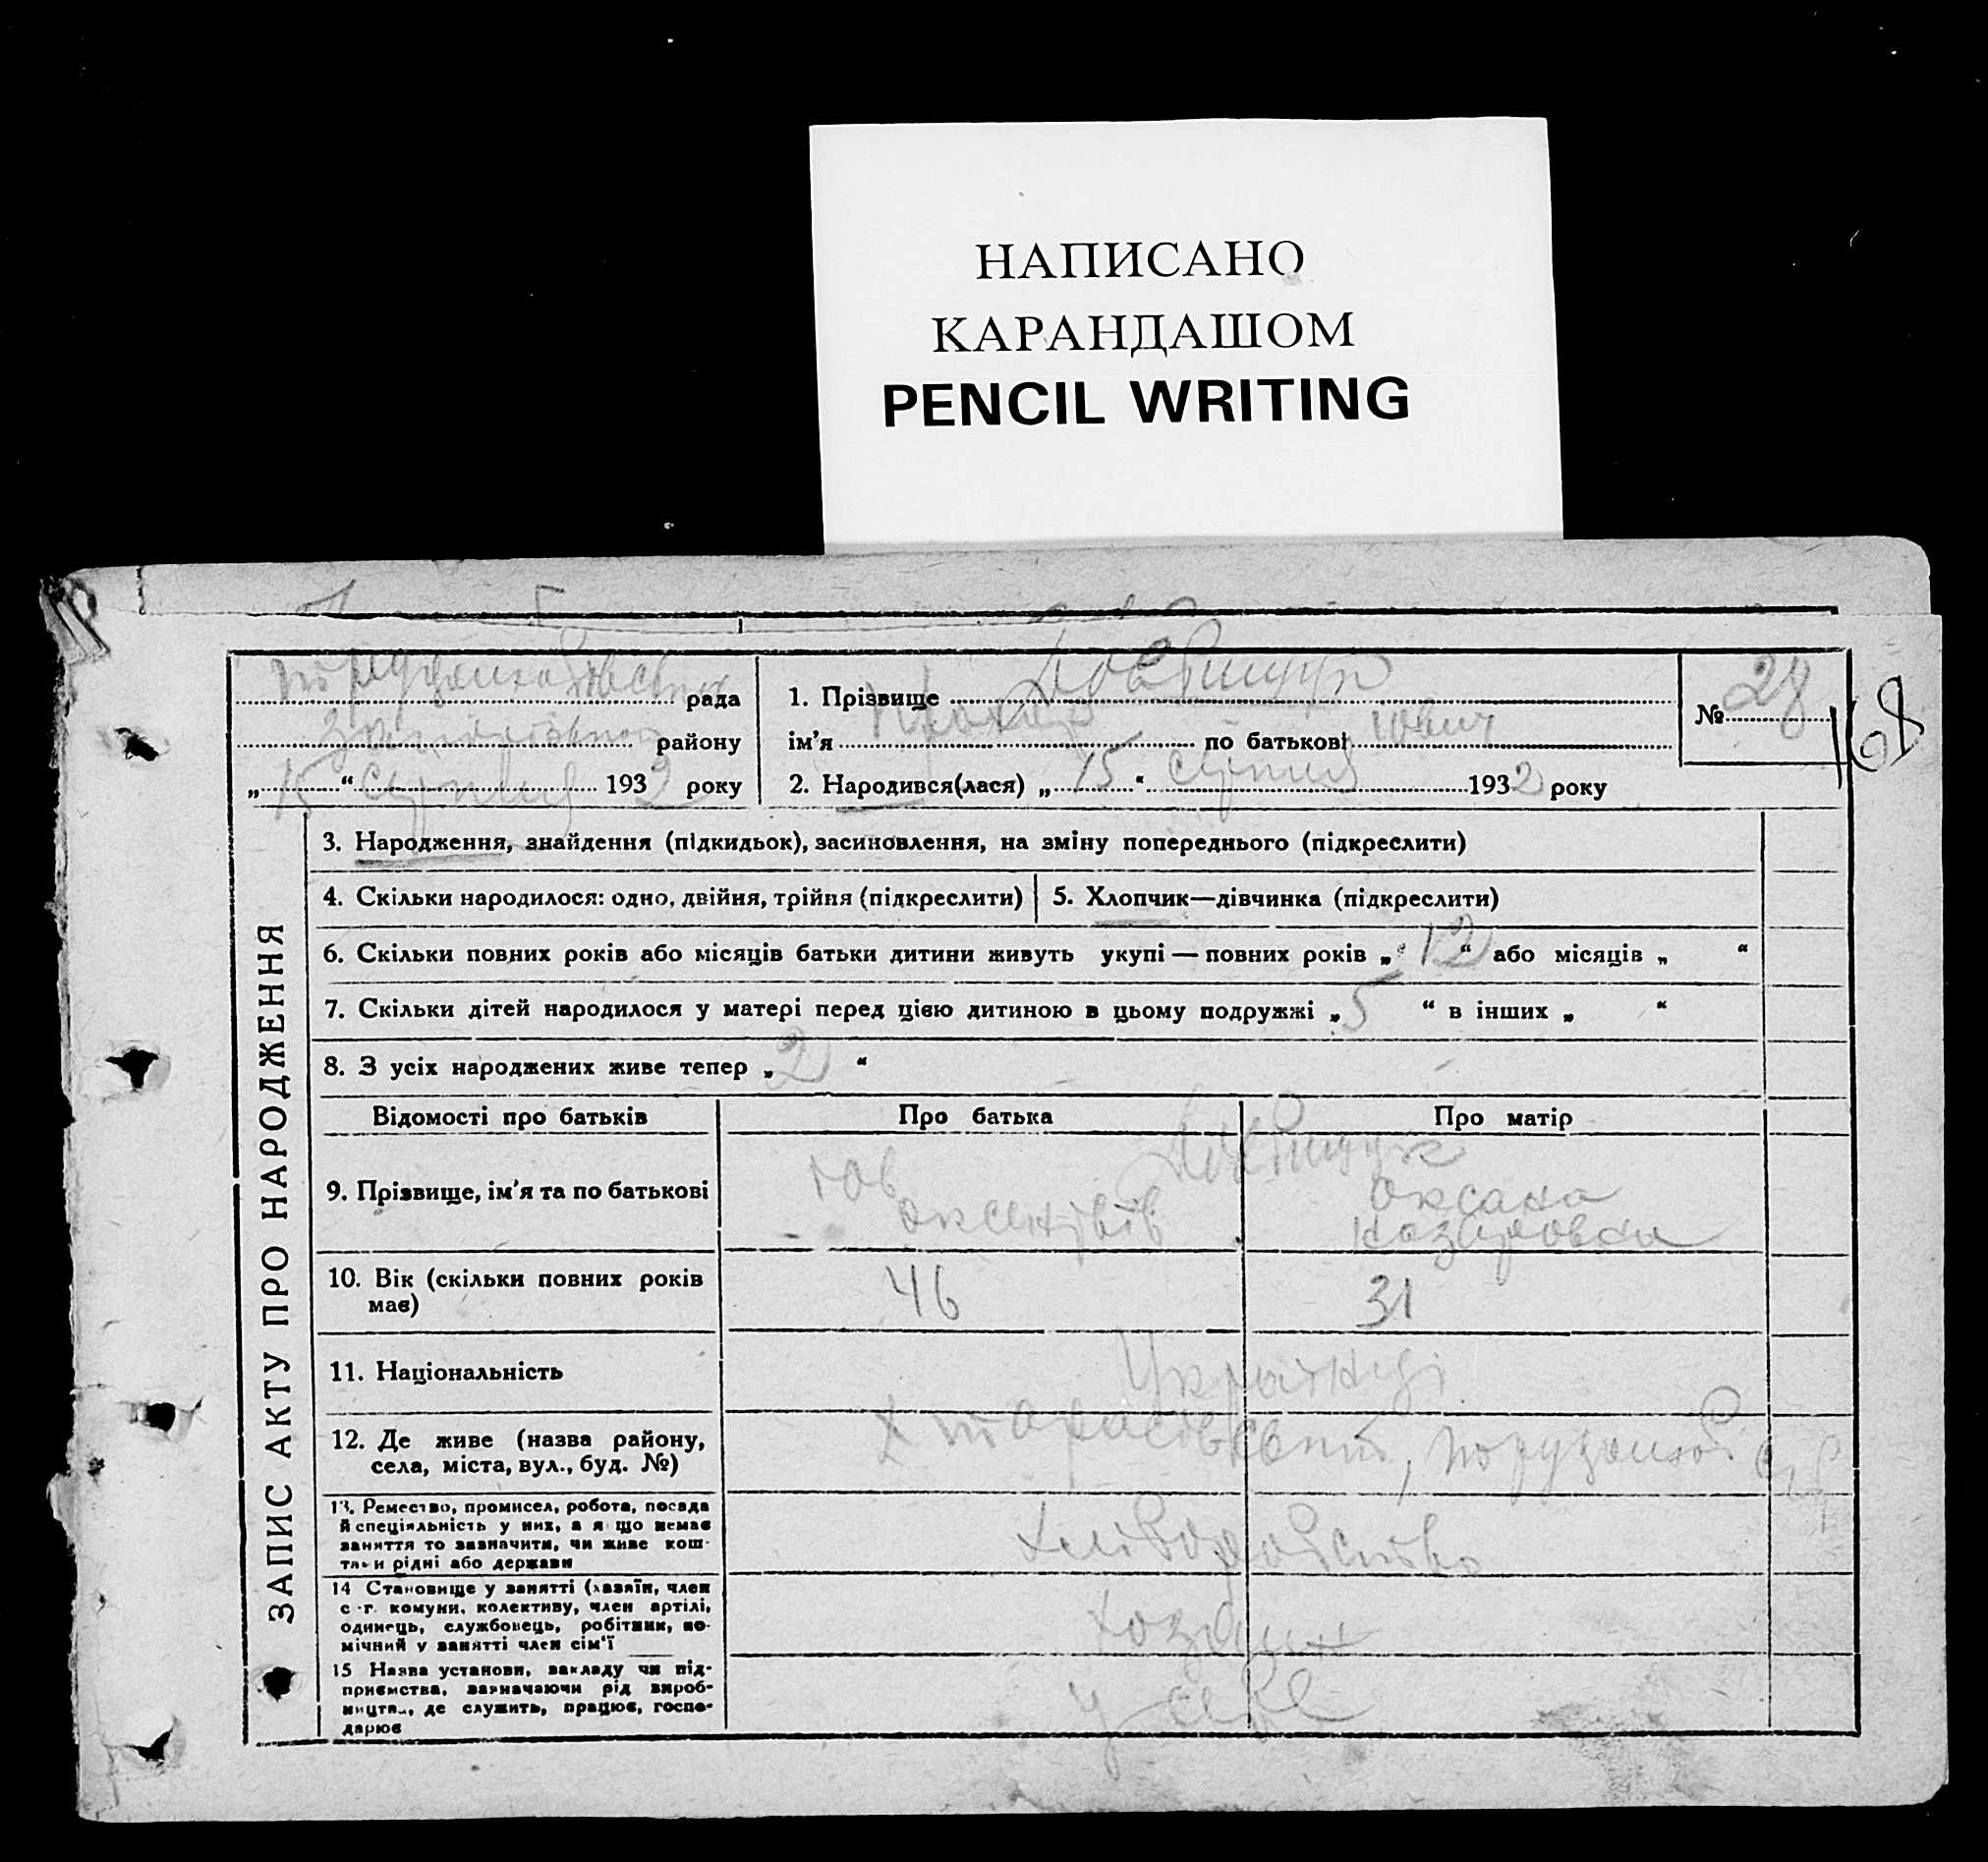 НАПИСАНО
КАРАНДАШОМ
PENCIL WRITING
рада
району
„15“ серпня 1932 року
1. Прізвище Довгищук
ім'я по батькові Йович
2. Народився(лася) „15“ серпня 1932 року
№ 28
168
ЗАПИС АКТУ ПРО НАРОДЖЕННЯ
3. Народження, знайдення (підкидьок), засиновлення, на зміну попереднього (підкреслити)
4. Скільки народилося: одно, двійня, трійня (підкреслити)
5. Хлопчик—дівчинка (підкреслити)
6. Скільки повних років або місяців батьки дитини живуть укупі — повних років „12“ або місяців „ “
7. Скільки дітей народилося у матері перед цією дитиною в цьому подружжі „5 “ в інших „ “
8. З усіх народжених живе тепер „2 “
Відомості про батьків
Про батька
Про матір
9. Прізвище, ім'я та по батькові
Довгищук
Йов
Оксана
10. Вік (скільки повних років
має)
46
31
11. Національність
Українці
12. Де живе (назва району,
села, міста, вул., буд. №)
13. Ремество, промисел, робота, посада
й спеціяльність у них, а якщо немає
заняття то зазначити, чи живе кош-
тами рідні або держави
хліборобство
14 Становище у занятті (хазяїн, член
с.-г. комуни, колективу, член артілі,
одинець, службовець, робітник, по-
мічний у занятті член сім'ї
хозяин
15 Назва установи, закладу чи під-
приємства, зазначаючи рід вироб-
ництва, де служить, працює, госпо-
дарює
у себе